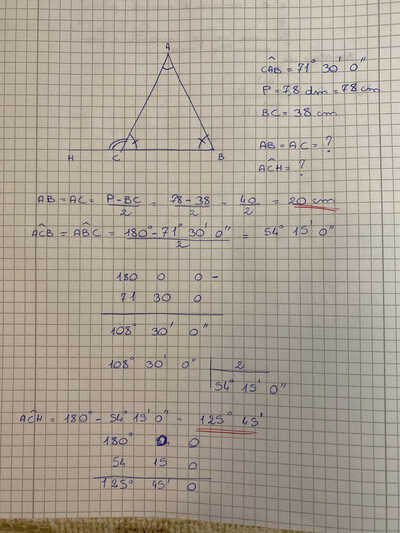 A
CÂB = 71° 30' 0"
P = 7,8 dm = 78 cm
BC = 38 cm
H C B
AB = AC = ?
AĈH = ?
AB = AC = P - BC / 2 = 78 - 38 / 2 = 40 / 2 = 20 cm
AĈB = AB̂C = 180° - 71° 30' 0" / 2 = 54° 15' 0"
180 0 0 -
71 30 0
108° 30' 0"
108° 30' 0" 2
54° 15' 0"
AĈH = 180° - 54° 15' 0" = 125° 45'
180° 0 0
54 15 0
125° 45' 0